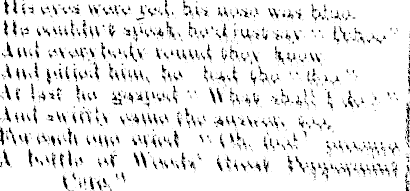 His eyes were red, his nose was blue,
He couldn't speak, he'd just say "
And everybody round him knew
And pitied him, he had the "
At last he gasped "What shall I do"
And swiftly came the answer
For each one cried "
A bottle of Woods' Great Peppermint
Cure"